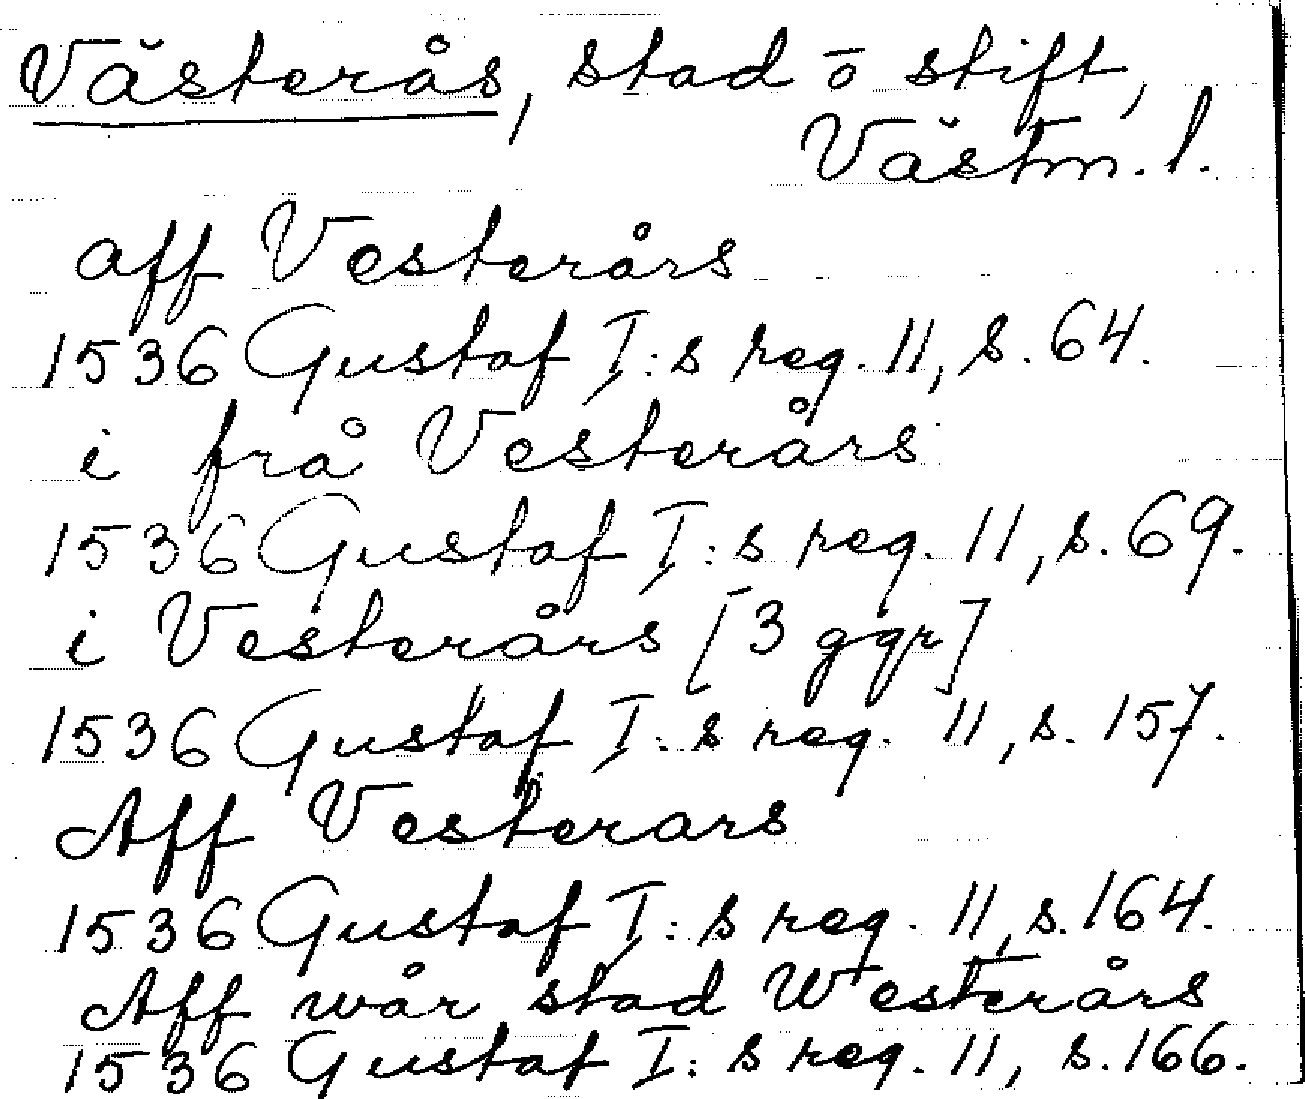 Västerås, stad ō stift,
Västm. l.
aff Vesterårs
1536 Gustaf I:s reg. 11, s. 64.
i frå Vesterårs
1536 Gustaf I:s reg. 11, s. 69.
i Vesterårs [3 ggr]
1536 Gustaf I:s reg. 11, s. 157.
Aff Vesterars
1536 Gustaf I:s reg. 11, s. 164.
Aff wår stad Westerårs
1536 Gustaf I:s reg. 11, s. 166.